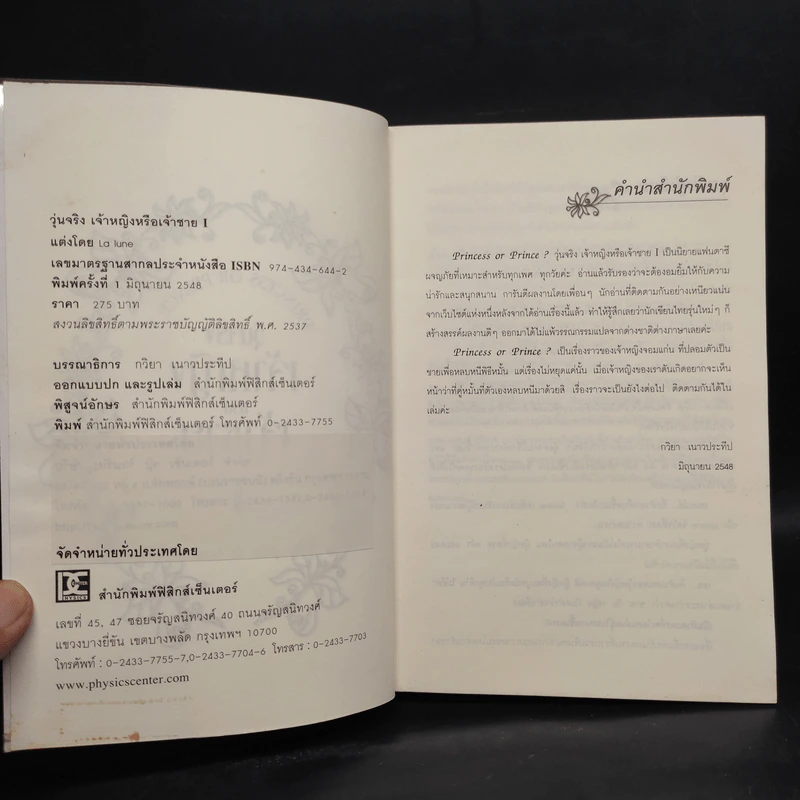 วุ่นจริง เจ้าหญิงหรือเจ้าชาย I
แต่งโดย La lune
เลขมาตรฐานสากลประจำหนังสือ ISBN 974-434-644-2
พิมพ์ครั้งที่ 1 มิถุนายน 2548
ราคา 275 บาท
สงวนลิขสิทธิ์ตามพระราชบัญญัติลิขสิทธิ์ พ.ศ. 2537
บรรณาธิการ กวิยา เนาวประทีป
ออกแบบปก และรูปเล่ม สำนักพิมพ์ฟิสิกส์เซ็นเตอร์
พิสูจน์อักษร สำนักพิมพ์ฟิสิกส์เซ็นเตอร์
พิมพ์ สำนักพิมพ์ฟิสิกส์เซ็นเตอร์ โทรศัพท์ 0-2433-7755
จัดจำหน่ายทั่วประเทศโดย
สำนักพิมพ์ฟิสิกส์เซ็นเตอร์
เลขที่ 45, 47 ซอยจรัญสนิทวงศ์ 40 ถนนจรัญสนิทวงศ์
แขวงบางยี่ขัน เขตบางพลัด กรุงเทพฯ 10700
โทรศัพท์ : 0-2433-7755-7,0-2433-7704-6 โทรสาร : 0-2433-7703
www.physicscenter.com
คำนำสำนักพิมพ์
Princess or Prince ? วุ่นจริง เจ้าหญิงหรือเจ้าชาย I เป็นนิยายแฟนตาซี
ผจญภัยที่เหมาะสำหรับทุกเพศ ทุกวัยค่ะ อ่านแล้วรับรองว่าจะต้องอมยิ้มให้กับความ
น่ารักและสนุกสนาน การันตีผลงานโดยเพื่อนๆ นักอ่านที่ติดตามกันอย่างเหนียวแน่น
จากเว็บไซต์แห่งหนึ่งหลังจากได้อ่านเรื่องนี้แล้ว ทำให้รู้สึกเลยว่านักเขียนไทยรุ่นใหม่ๆ ก็
สร้างสรรค์ผลงานดีๆ ออกมาได้ไม่แพ้วรรณกรรมแปลจากต่างชาติต่างภาษาเลยค่ะ
Princess or Prince ? เป็นเรื่องราวของเจ้าหญิงจอมแก่น ที่ปลอมตัวเป็น
ชายเพื่อหลบหนีพิธีหมั้น แต่เรื่องไม่หยุดแค่นั้น เมื่อเจ้าหญิงของเราดันเกิดอยากจะเห็น
หน้าว่าที่คู่หมั้นที่ตัวเองหลบหนีมาด้วยสิ เรื่องราวจะเป็นยังไงต่อไป ติดตามกันได้ใน
เล่มค่ะ
กวิยา เนาวประทีป
มิถุนายน 2548